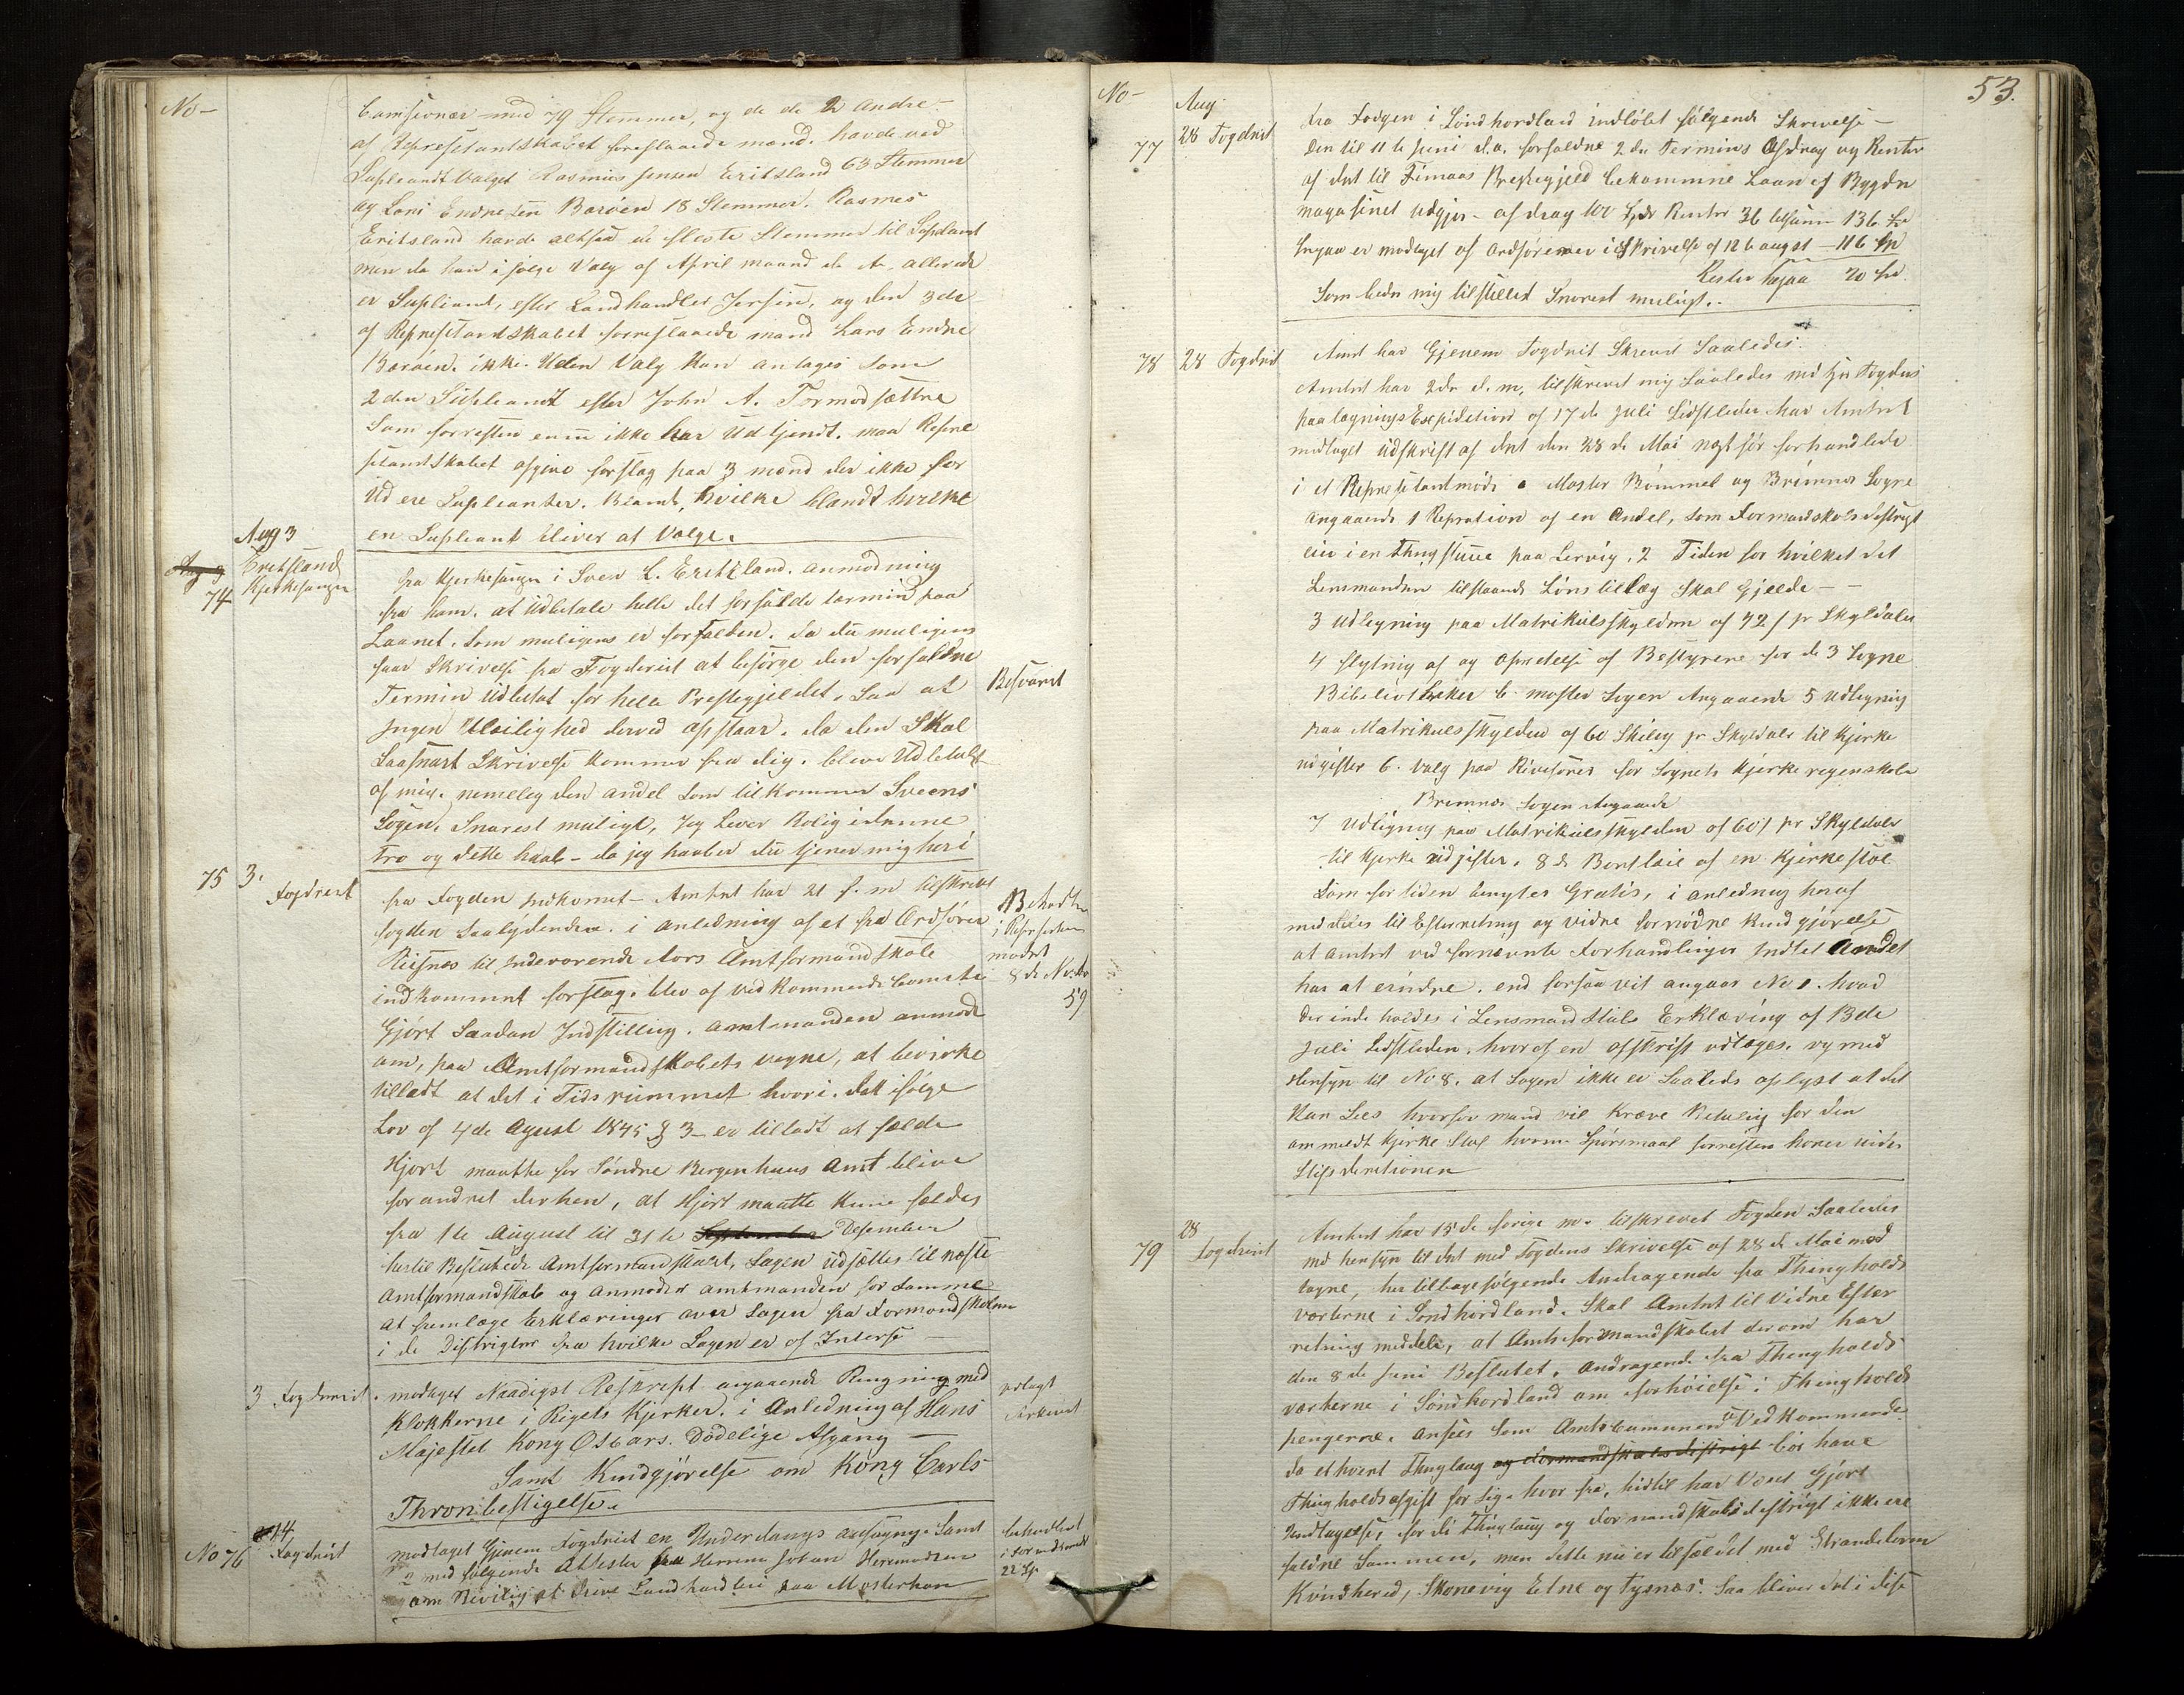 No
med 79 Stemmer, og de de 2 Andre
af Represetantskabet foreslaaede mænd. havde ved
Supleandt Valget Rasmus Jensen Eritsland 63 Stemmer
og Lars Endresen Barøen 18 Stemmer. Rasmus
Eritsland havde altsaa de fleste Stemmer til Supleant
men da han i følge Valg af April maaned d. A. allerede
er Supleant, efter Landhandler Jersin, og den 3de
af Represetantskabet foreslaaede mand Lars Endre
Barøen. ikke Uden Valg kan antages som
2den Supleandt efter John A. Tormodsættre
Som forresten ennu ikke har Udtjendt. maa Repre
setantskabet afgive forslag paa 3 mænd der ikke for
Ud ere Supleanter. Blandt, hvilke blandt hvilke
en Supleant bliver at Vælge.
Aug 3
Aug 3 Eritsland
74 Kjerkesanger
fra Kjerkesanger i Sveen L. Eritzland. anmodning
fra ham. at Udbetale helle det forfaldte termin paa
Laanet. Som muligens er forfalden. da du muligens
faar Skrivelse fra Fogderiet at besørge den forfaldne
Termin Udbetat for hele Prestegjeldet. Saa at
Ingen Uleilighed derved opstaar. da den Skal
Saasnart Skrivelse kommer fra dig. blive Udbetalt
af mig. nemelig den andel som tilkommer Sveens
Sogen. Snarest muligt, Jeg Lever Rolig i denne
tro og dette haab – da jeg haaber du tjener mig heri
Besvaret
75 3. Fogdriet
fra Fogden Indkomet – Amtet har 21 f. m tilskrevet
fogden Saalydende. i anledning af et fra Ordfører
til Indeværende Aars Amtformandskab
indkommet forslag. blev af vedkommende
Gjørt Saadan Indstilling. Amtmanden anmode
om, paa Amtformandskabets vegne, at bevirke
tilladt at det i Tidsrummet hvori. det ifølge
Lov af 4de Agust 1845 § 3 – er tilladt at fælde
Hjort maatte for Søndre Bergenhuus Amt blive
forandret derhen, at Hjort maatte kune fældes
fra 1te August til 31te September Desember
hertil Besluttede Amtformandskabet, Sagen udsættes til næste
Amtformandskab og Anmoder amtmanden for samme
at fremlæge Erklæringer over Sagen fra Formandskaberne
i de Distrigter fra hvilke Sagen er af Interse
i
mødet
8de
59
3 Fogderiet.
modtaget Naadigst Reskript angaaende Ringning med
Klokkerne i Rigets Kjerker. i Anledning af Hans
Majestet Kong Oscars. Dødelige Afgang
Samt Kundgjørelse om Kong Carls
Thronbestigelse.
14
No 76 Fogdriet
modtaget Gjenem Fogdriet en Underdanigs ansøgnig. Samt
2 med følgende Attester fra Herrem Johan Hermodsen
om Bevilig at Drive Landhandleri paa Mosterhavn
behandlet
22
53.
No
Aug
77
28 Fogdriet
fra Fodgen i Søndhordland indløbet følgende Skrivelse –
Den til 11te Juni d.a. forfaldne 2den Termins Afdrag og Renter
af det til Finaas Prestegjeld bekommne Laan af Bygde
magasinet udgjør – afdrag 100 Spdr Renter 36 tilsamm 136
er modtaget af ordføreren i Skrivelse af 12te augst – 116
Rester 20
Som bedes mig tilstillet Snarest muligt.
78 28 Fogdriet
Amtet har Gjenem Fogdriet Skrevet Saaledes.
Amtet har 2den d. m, tilskrevet mig Saaledes med Hr Fogdens
paategnings Expidition af 17de Juli Sidstleden har Amtet
modtaget Udskrift af det den 28de Mai næst før forhandlede
i et Represetantmøde Moster Bømmel og Bremnes Sogne
angaaende 1 Repration af en Andel, som Formandskabsdistrigt
eier i en Thingstue paa Lervig. 2 Tiden for hvilket det
Lensmanden tilstaaede Lønstillæg Skal Gjelde –
3 Udlegning paa Matrikulsskylden af 42 / pr Skyldaler
4 flytnig af og oprettelse af Bestyrere for de 3 Sogne
Bibeliotheker 6. Moster Sogen Angaaende 5 Udlegnig
paa Matrikulsskylden af 60 Skilig pr Skyldaler til Kjerke
udgifter 6. Valg paa Revisorer for Sognets Kjerkeregenskabe
Bremnes Sogen Angaaende
7 Udlignig paa Matrikulsskylden af 60 / pr Skyldaler
til Kjerke udgifter. 8de Bortleie af en Kjerkestol
Som for tiden benyttes Gratis, i anledning heraf
meddeles til Efterretnig og vidre fornødne Kundgjørelse
at Amtet ved fornævnte Forhandlinger Indtet Andet
har at erindre. end forsaavit angaar No 1. hvad
der inde holdes i Lensmand Stabs Erklæring af 13de
Juli Sidstleden. hvoraf en afskrift vedlæges. og med
Hensyn til No 8. at Sagen ikke er Saaledes oplyst at det
kan Sees hvorfor mand vil kræve Betalig for den
ommeldt Kjerke Stol hvorom Spørsmaal forresten hører under
Stifsderetionen
79
28 Fogderiet
Amtet har 15de forige m. tilskrevet Fogden Saaledes
med hensyn til det med Fogdens Skrivelse af 28de Mai mod
tagne, her tilbagefølgende Andragende fra Thingholds
værterne i Søndhordland. Skal Amtet til Vidre Efter
retning meddele, at Amtsformandskabet derom har
den 8de Juni Besluttet, Andragende fra Thingholds
værterne i Søndhordland om forhøielse i Thingholds
pengerne, ansees som Amtscummunen Vedkommende
da ethvert Thinglaug og Formandskabsdistrigt bør have
Thingholdsafgift for Sig. hvor fra, hidtil har været Gjørt
Undtagelse, for di Thinglaug og Formandskabsdistrigt ikke ere
faldne Sammen, men dette nu er tilfældet med Strandebarm
Kvindhered, Skonevig Etne og Tysnæs. Saa bliver det i disse